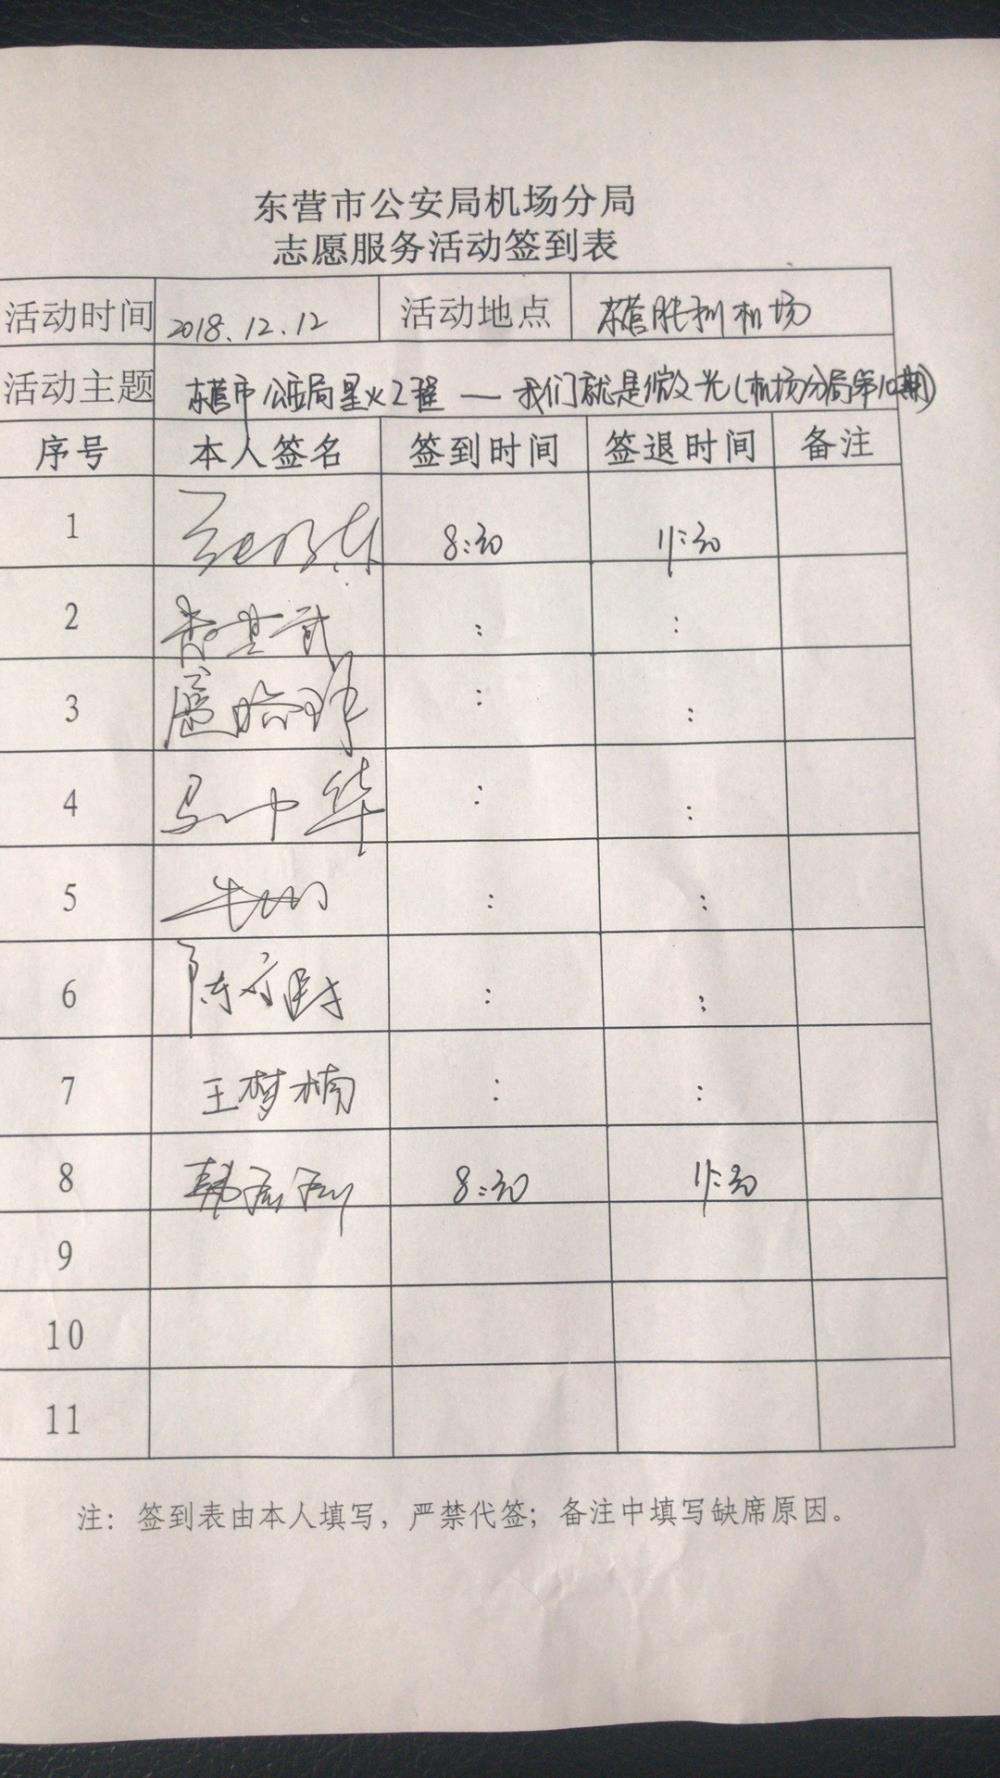 东营市公安局机场分局
志愿服务活动签到表
活动时间 2018.12.12 活动地点 东营胜利机场
活动主题 东营市公安局星火工程——我们就是微光(机场分局第10期)
序号 本人签名 签到时间 签退时间 备注
1 8:30 11:30
2 : :
3 : :
4 马中华 : :
5 : :
6 陈 : :
7 王梦楠 : :
8 韩 8:30 11:30
9
10
11
注：签到表由本人填写，严禁代签；备注中填写缺席原因。